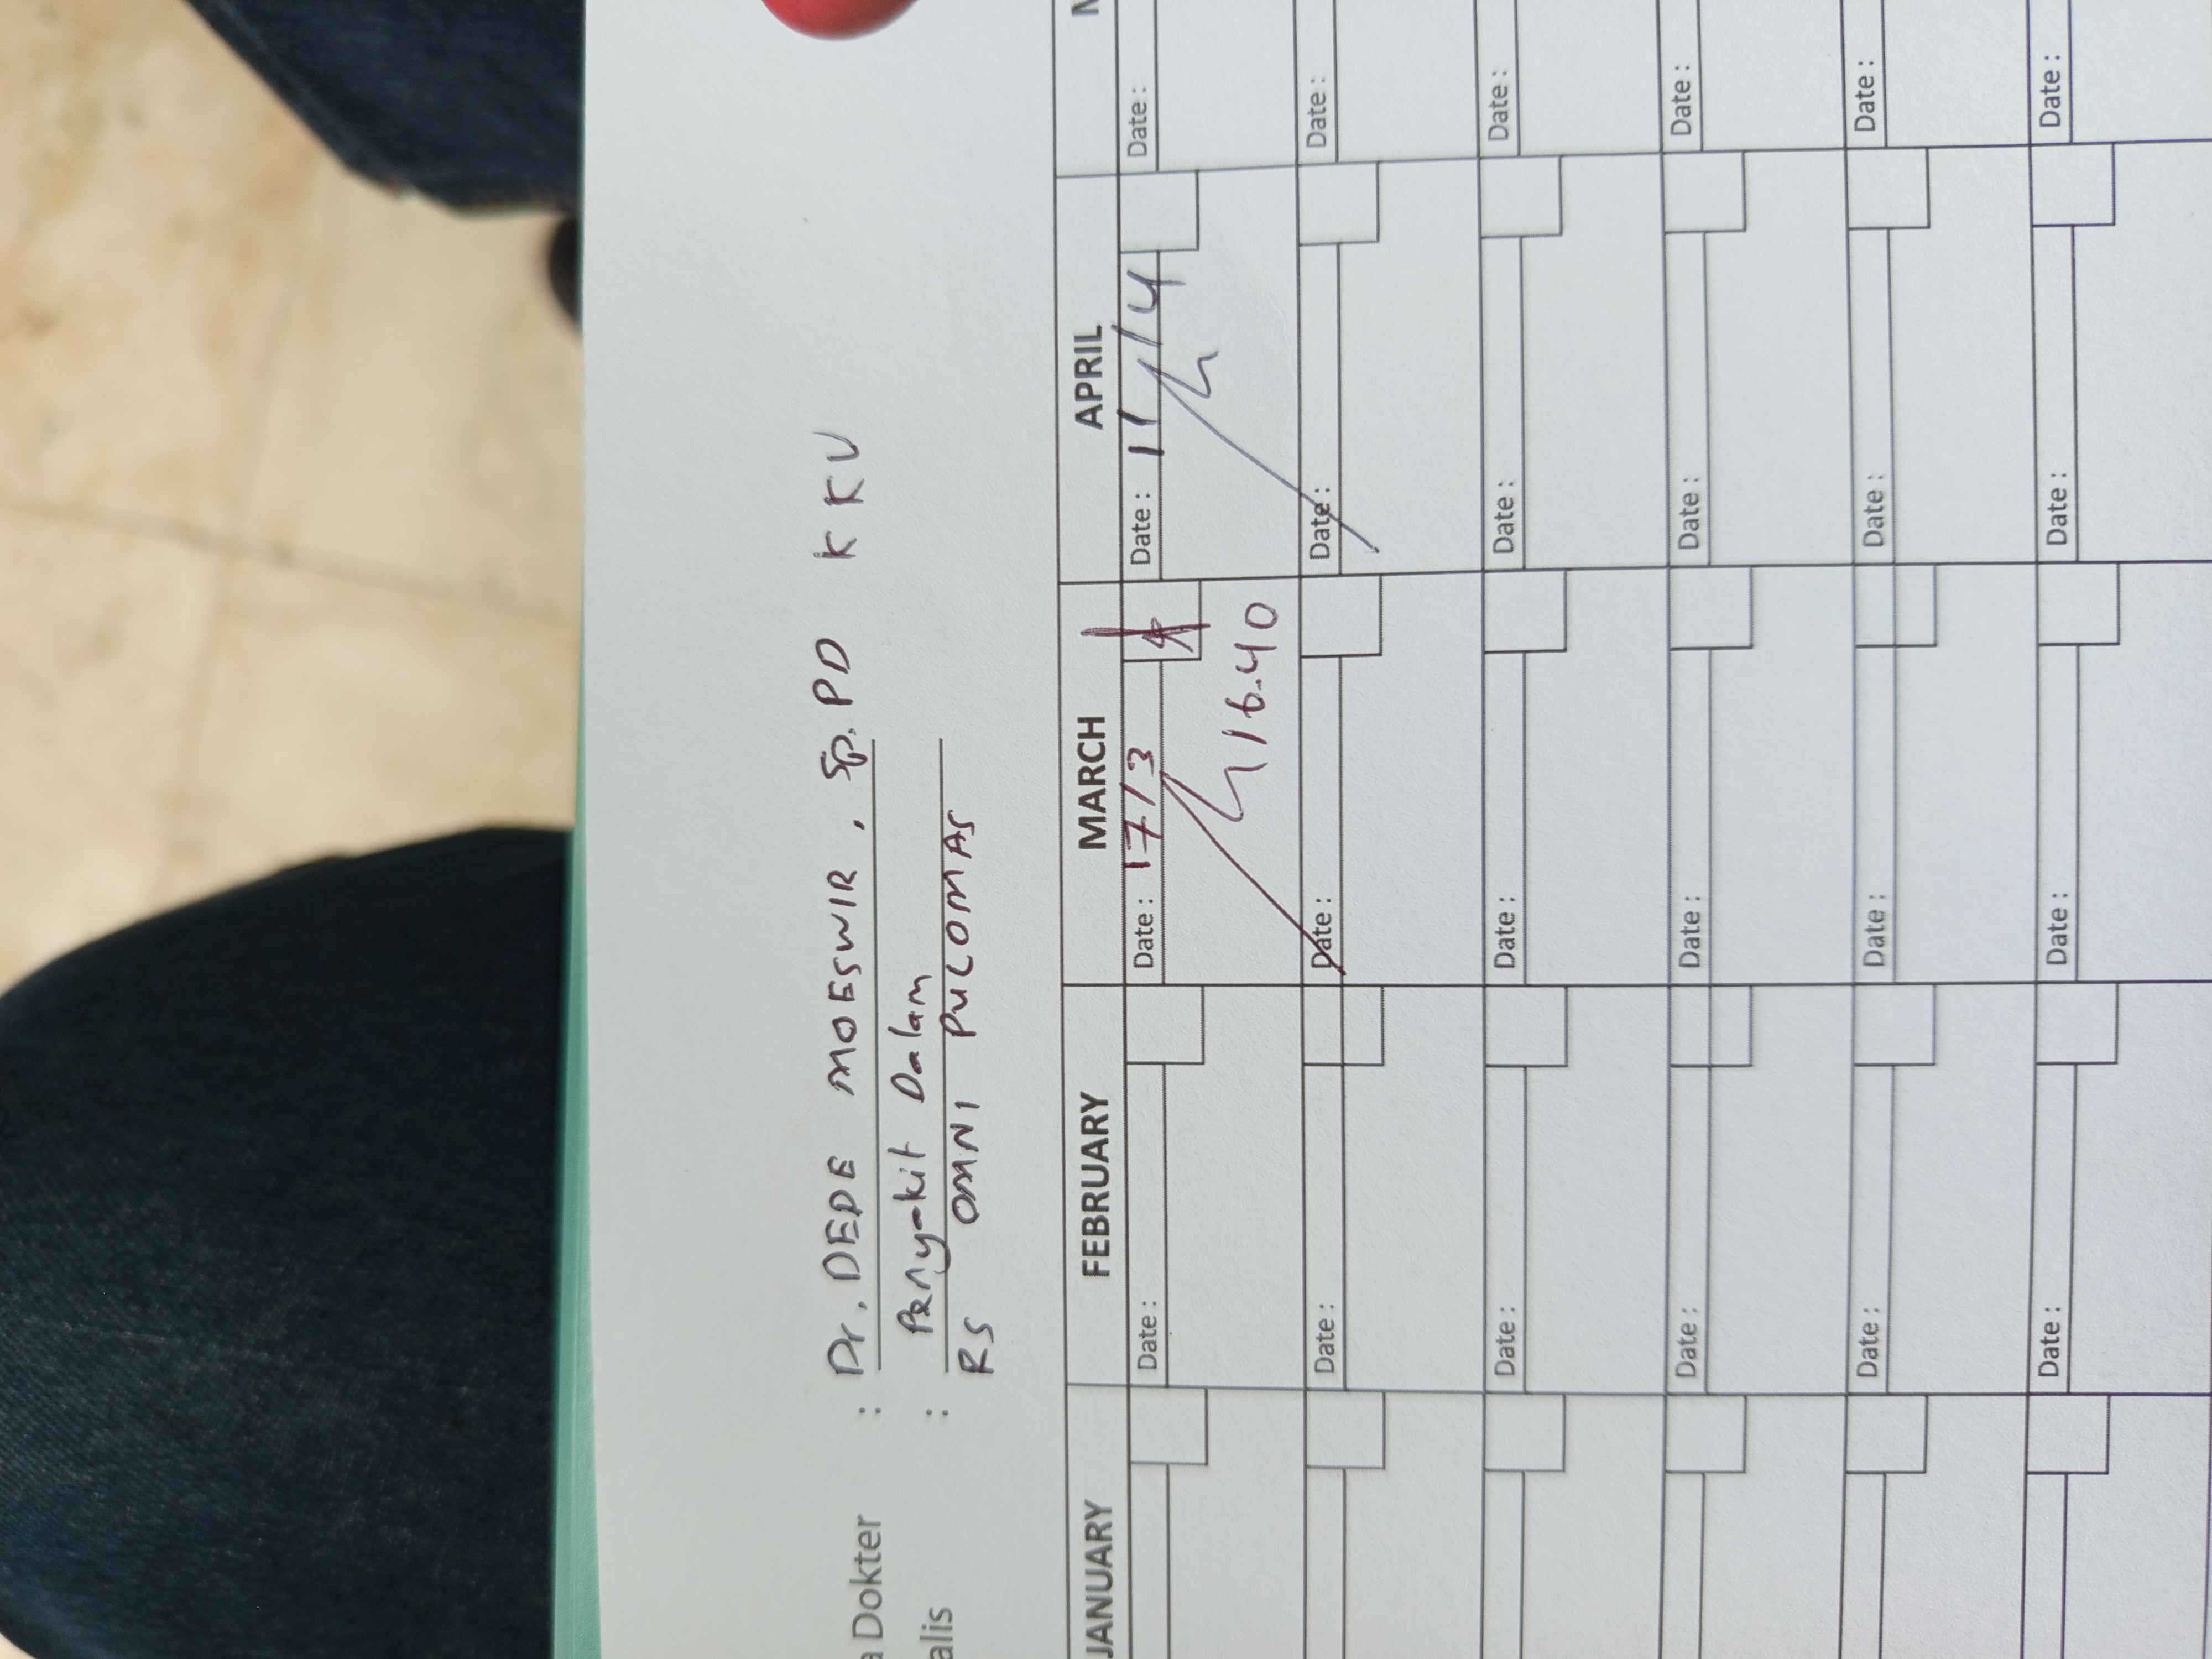 a Dokter : Dr. DEDE MOESWIR, Sp. PD KKV
alis : Penyakit Dalam
RS OMNI PULOMAS
JANUARY FEBRUARY MARCH APRIL
Date : Date : 17/3 Date : 11/4 Date :
16.40
Date : Date : Date : Date :
Date : Date : Date : Date :
Date : Date : Date : Date :
Date : Date : Date : Date :
Date : Date : Date : Date :